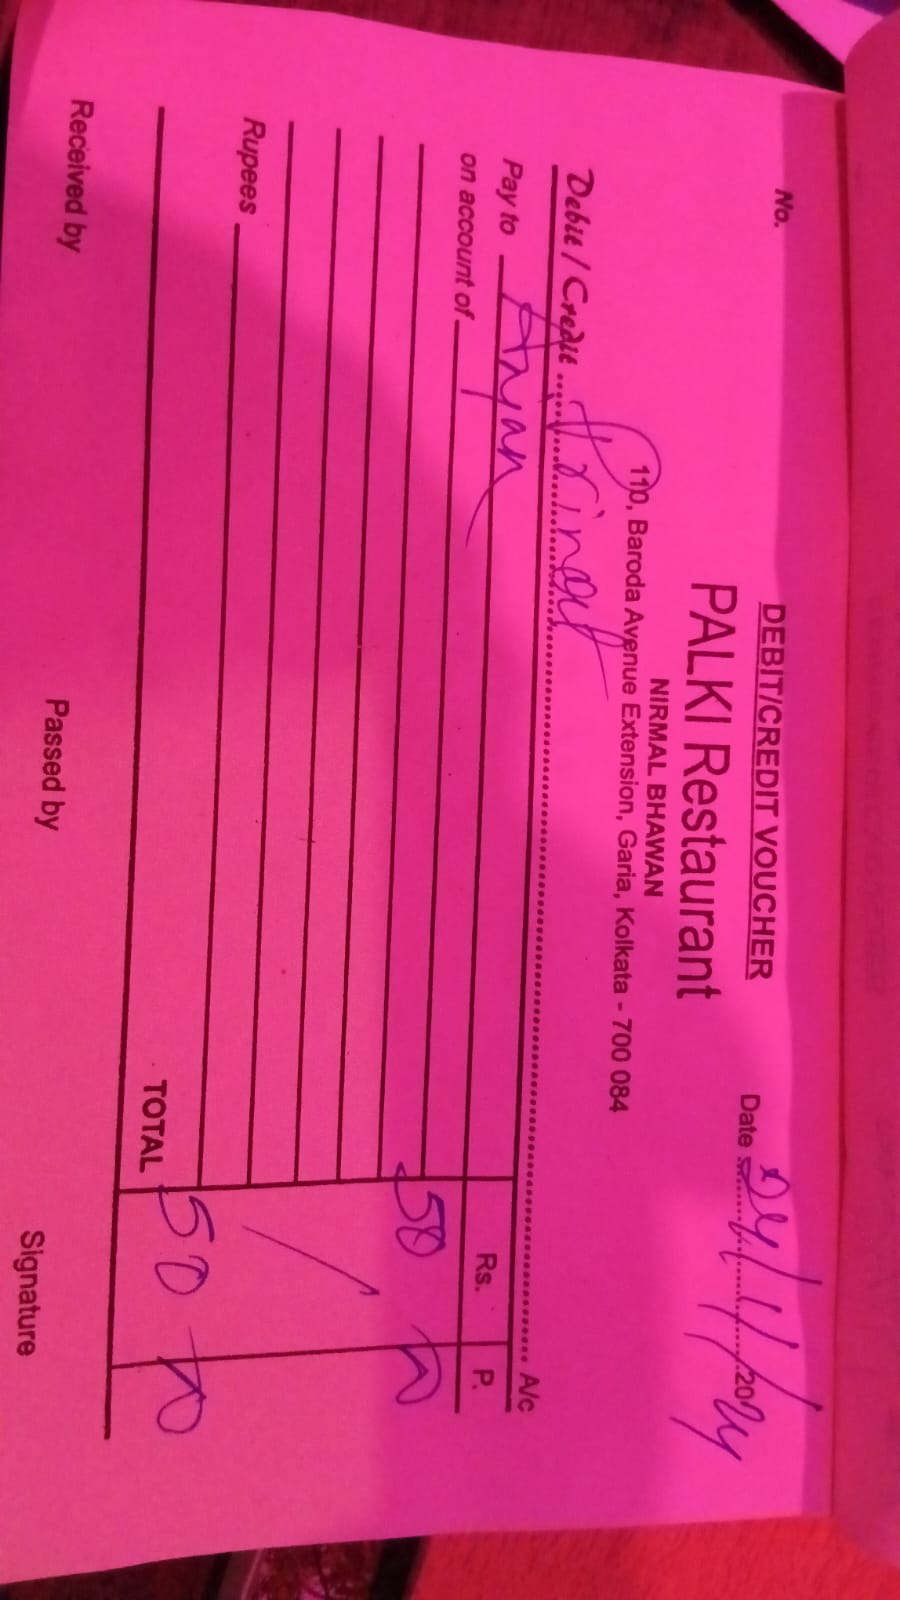 DEBIT/CREDIT VOUCHER
No.
Date 24/1/2024
PALKI Restaurant
NIRMAL BHAWAN
110, Baroda Avenue Extension, Garia, Kolkata - 700 084
Debit / Credit ........ A/c
Pay to Anjan
on account of
Rs. P.
50
Rupees
TOTAL 50
Received by Passed by Signature